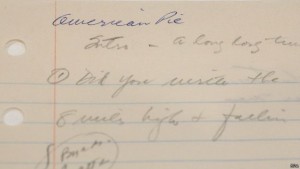 American Pie
Intro - a long long time
① Did you write the
8 miles high + fallin